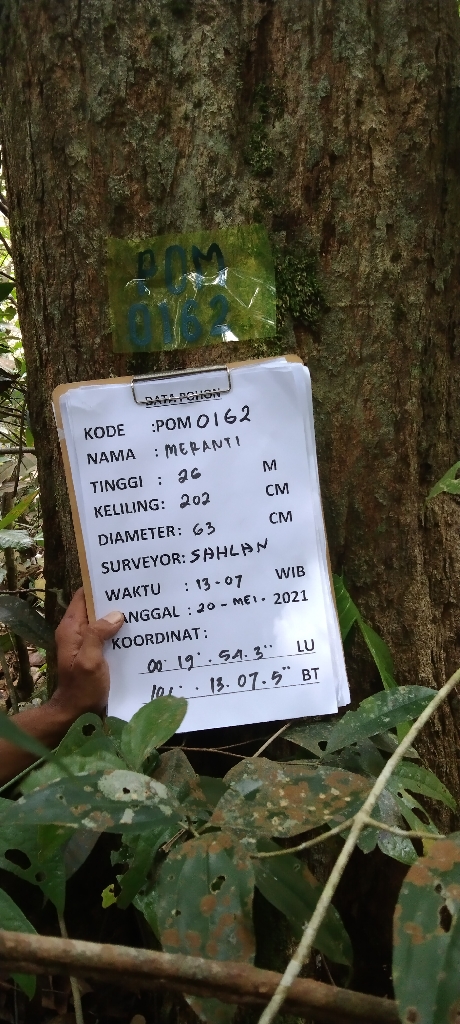 POM
0162
DATA POHON
KODE : POM 0162
NAMA : MERANTI
TINGGI : 26 M
KELILING: 202 CM
DIAMETER: 63 CM
SURVEYOR: SAHLAN
WAKTU : 13-07 WIB
ANGGAL : 20-MEI-2021
KOORDINAT:
00° 19'. 54.3" LU
13. 07.5" BT